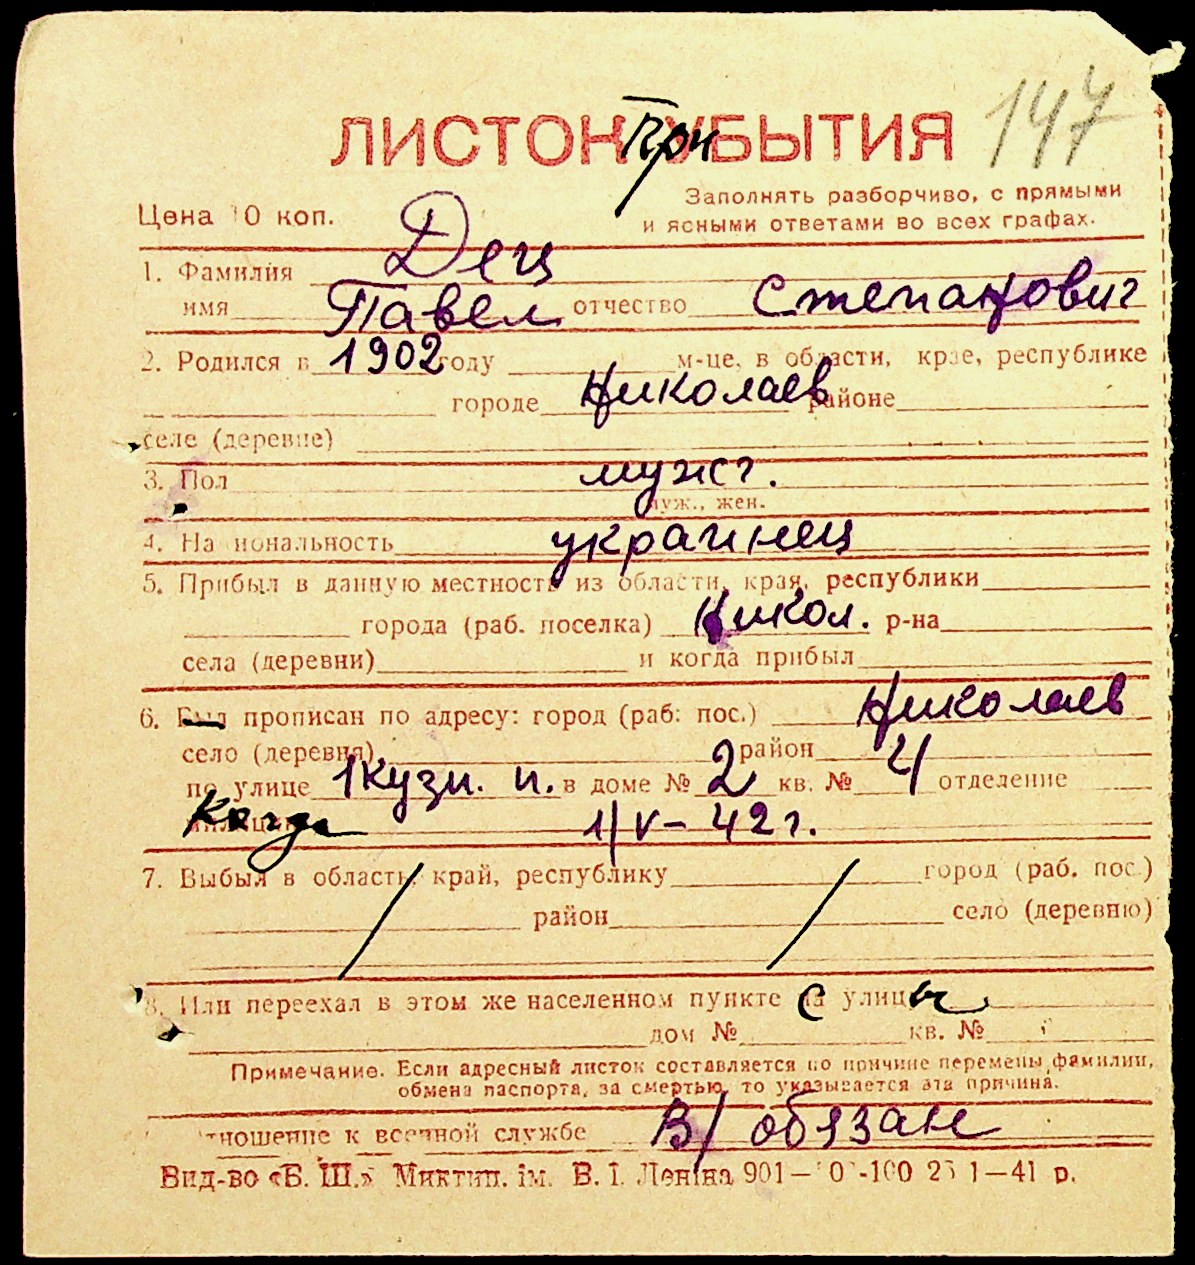 147
ЛИСТОК При УБЫТИЯ
Заполнять разборчиво, с прямыми
Цена 10 коп. и ясными ответами во всех графах.
1. Фамилия Дец
имя Павел отчество Степанович
2. Родился в 1902 году м-це, в области, крае, республике
городе Николаев районе
селе (деревне)
3. Пол мужс.
муж., жен.
4. Национальность украинец
5. Прибыл в данную местность из области, края, республики
города (раб. поселка) Никол. р-на
села (деревни) и когда прибыл
6. Был прописан по адресу: город (раб. пос.) Николаев
село (деревня) район
по улице 1 Кузн. п. в доме № 2 кв. № 4 отделение
милиции Когда 1/V-42 г.
7. Выбыл в область, край, республику город (раб. пос.)
район село (деревню)
8. Или переехал в этом же населенном пункте с улицы
дом № кв. №
Примечание. Если адресный листок составляется по причине перемены фамилии,
обмена паспорта, за смертью, то указывается эта причина.
Отношение к военной службе В/обязан
Вид-во «Б. Ш.» Миктип. ім. В. І. Леніна 901— -100 1—41 р.